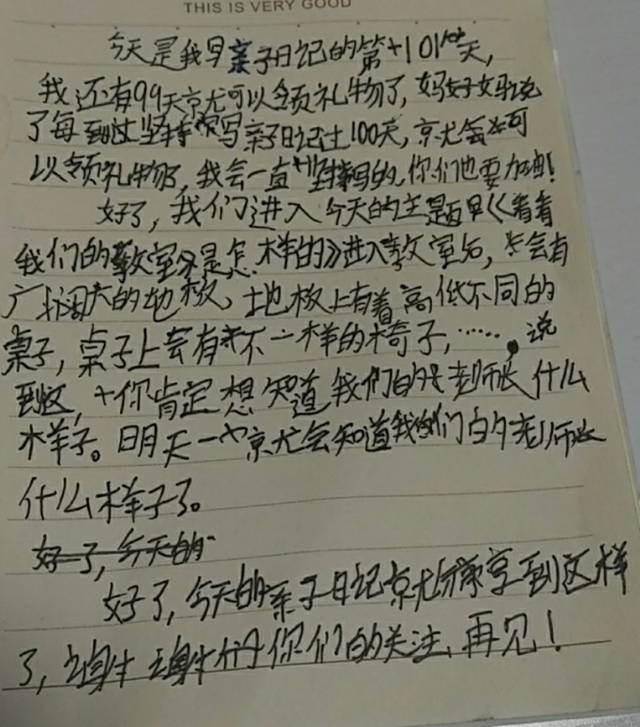 THIS IS VERY GOOD
今天是我写亲子日记的第101天，
我还有99天京尤可以领礼物了，妈妈说
了每到过坚持写亲子日记100天，京尤会可
以领礼物，我会一直坚持的，你们也要加油！
好了，我们进入今天的主题是《看看
我们的教室是怎样的》进入教室后，会有
广阔大的地板，地板上有着高低不同的
桌子，桌子上会有不一样的椅子，……。说
到这，你肯定想知道我们的老师长什么
样子。明天一京尤会知道我们的老师长
什么样子了。
好了，今天的
好了，今天的亲子日记京尤分享到这样
了，谢谢你们的关注，再见！